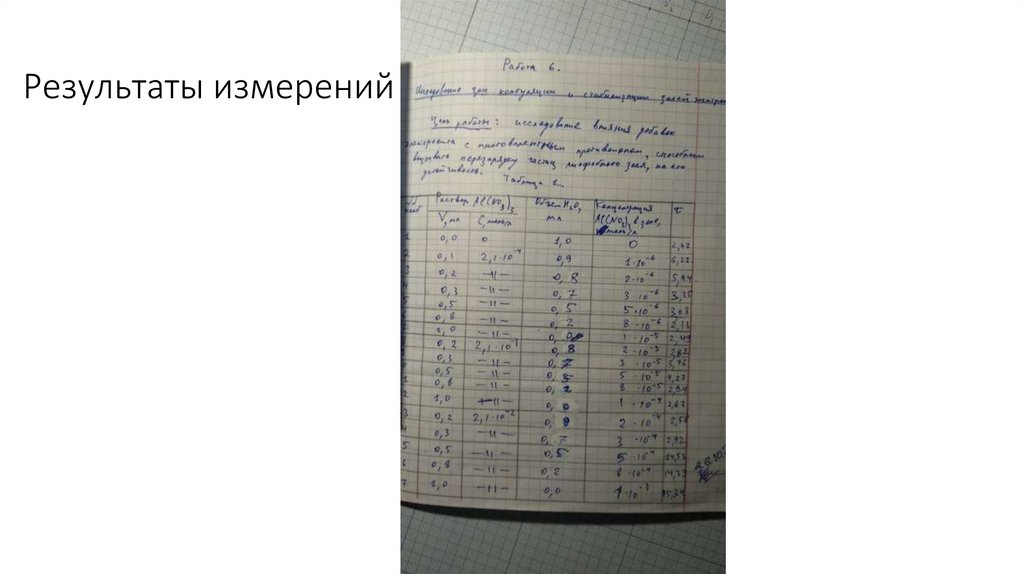 Результаты измерений
Работа 6.
Исследование зон коагуляции и стабилизации золей
Цель работы: исследование влияния добавок
электролита с многовалентным противоионом, способным
вызывать перезарядку частиц лиофобного золя, на его
устойчивость. Таблица 1.
Раствор Al(NO3)3 Объем H2O, мл Концентрация Al(NO3)3 в золе, моль/л τ
V, мл C, моль/л
1 0,0 0 1,0 0 2,42
2 0,1 2,1·10⁻⁴ 0,9 1·10⁻⁶
3 0,2 —॥— 0,8 2·10⁻⁶ 5,44
4 0,3 —॥— 0,7 3·10⁻⁶ 3,35
5 0,5 —॥— 0,5 5·10⁻⁶ 3,03
0,8 —॥— 0,2 8·10⁻⁶ 2,13
1,0 —॥— 0,0 1·10⁻⁵ 2,49
0,2 2,1·10⁻³ 0,8 2·10⁻⁵ 2,82
0,3 —॥— 0,7 3·10⁻⁵
0,5 —॥— 0,5 5·10⁻⁵ 4,27
1 0,8 —॥— 0,2 8·10⁻⁵ 2,94
2 1,0 —॥— 0,0 1·10⁻⁴ 2,67
3 0,2 2,1·10⁻² 0, 2·10⁻⁴ 2,58
4 0,3 —॥— 0,7 3·10⁻⁴ 2,92
5 0,5 —॥— 0,5 5·10⁻⁴ 14,52
6 0,8 —॥— 0,2 8·10⁻⁴ 14,73
7 1,0 —॥— 0,0 1·10⁻³ 15,34